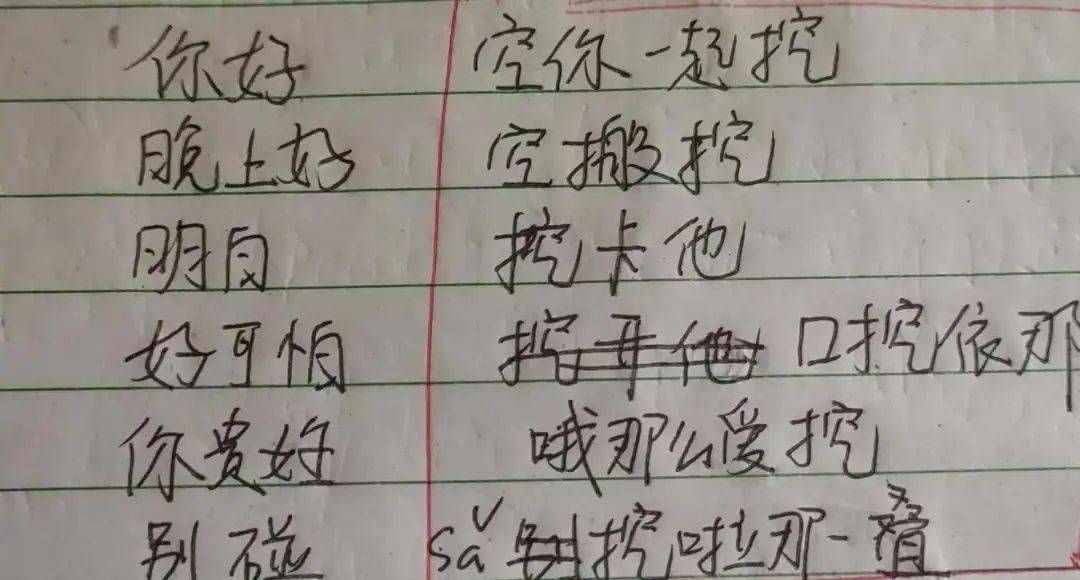 你好 空你一起挖
晚上好 空搬挖
明白 挖卡他
好可怕 口挖依那
你贵姓 哦那么爱挖
别碰 sǎ 挖啦那一